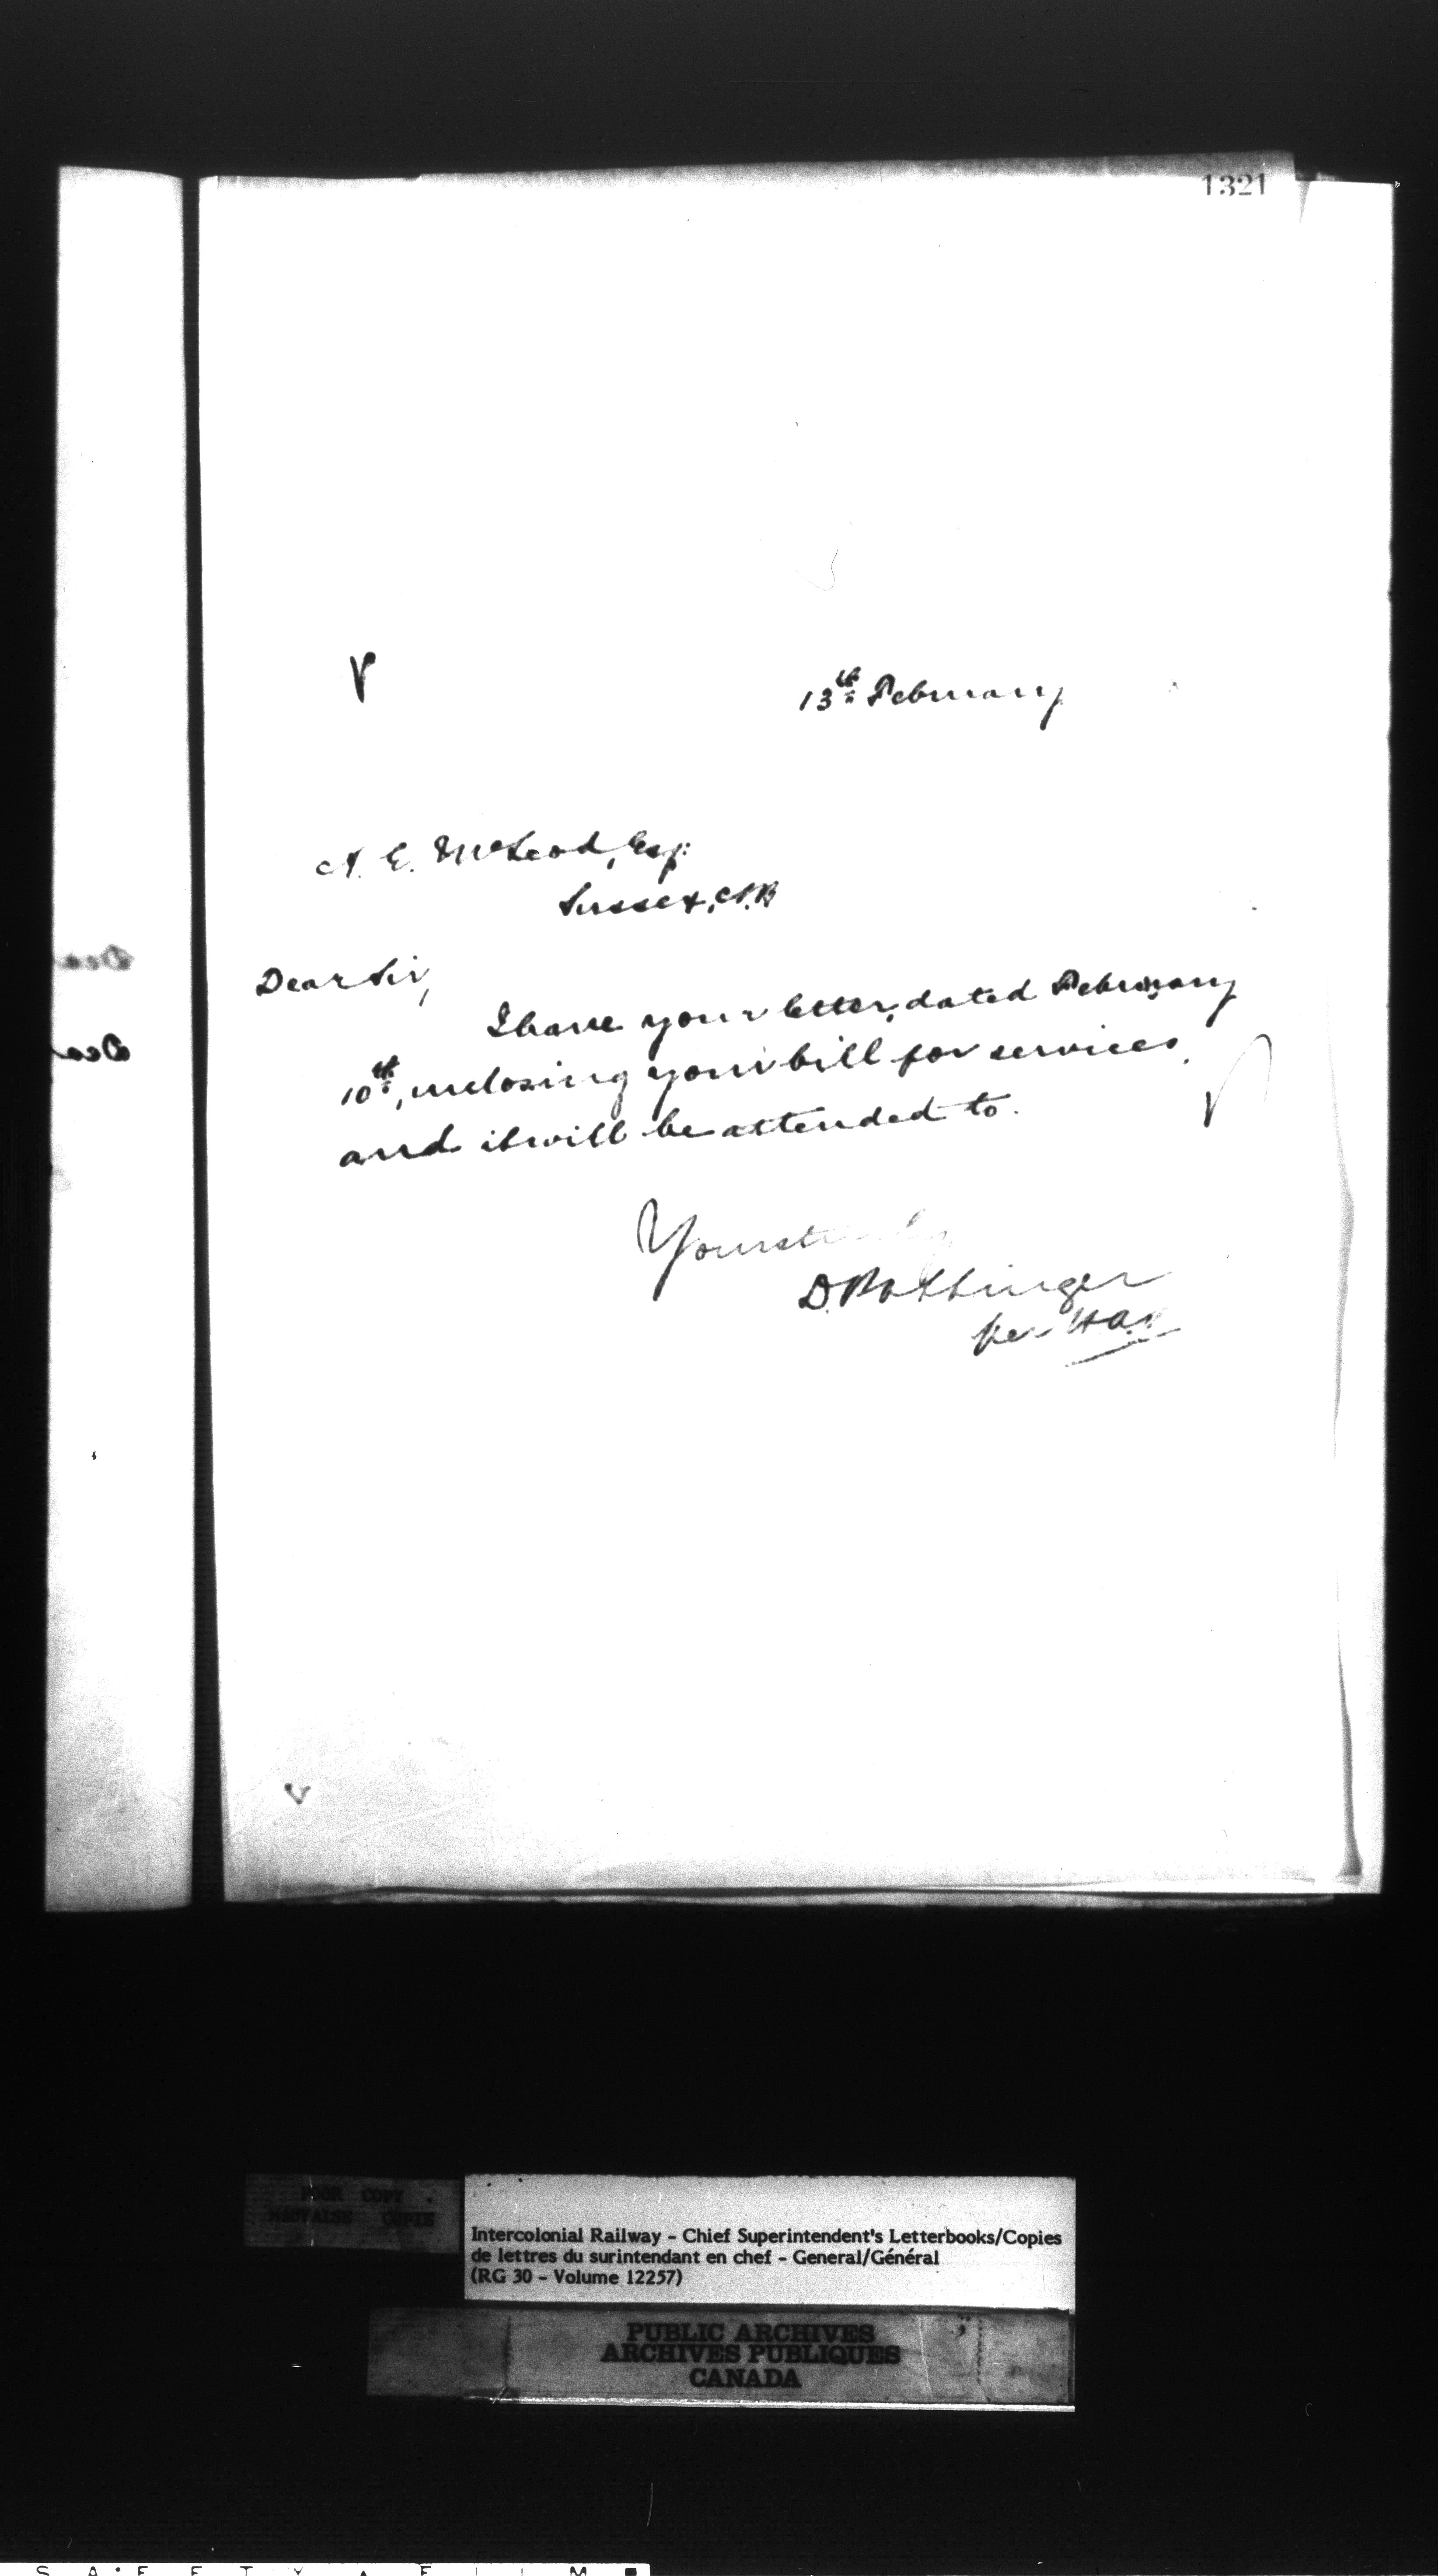 1321
13th February
A. E. McLeod, Esq:
Sussex, N.B
Dear Sir,
I have your letter, dated February
10th, inclosing your bill for services,
and it will be attended to.
Yours truly
D. Pottinger
per
Dea
Dea
POOR COPY
MAUVAISE COPIE
Intercolonial Railway - Chief Superintendent's Letterbooks/Copies
de lettres du surintendant en chef - General/Général
(RG 30 - Volume 12257)
PUBLIC ARCHIVES
ARCHIVES PUBLIQUES
CANADA
S A F E T Y F I L M